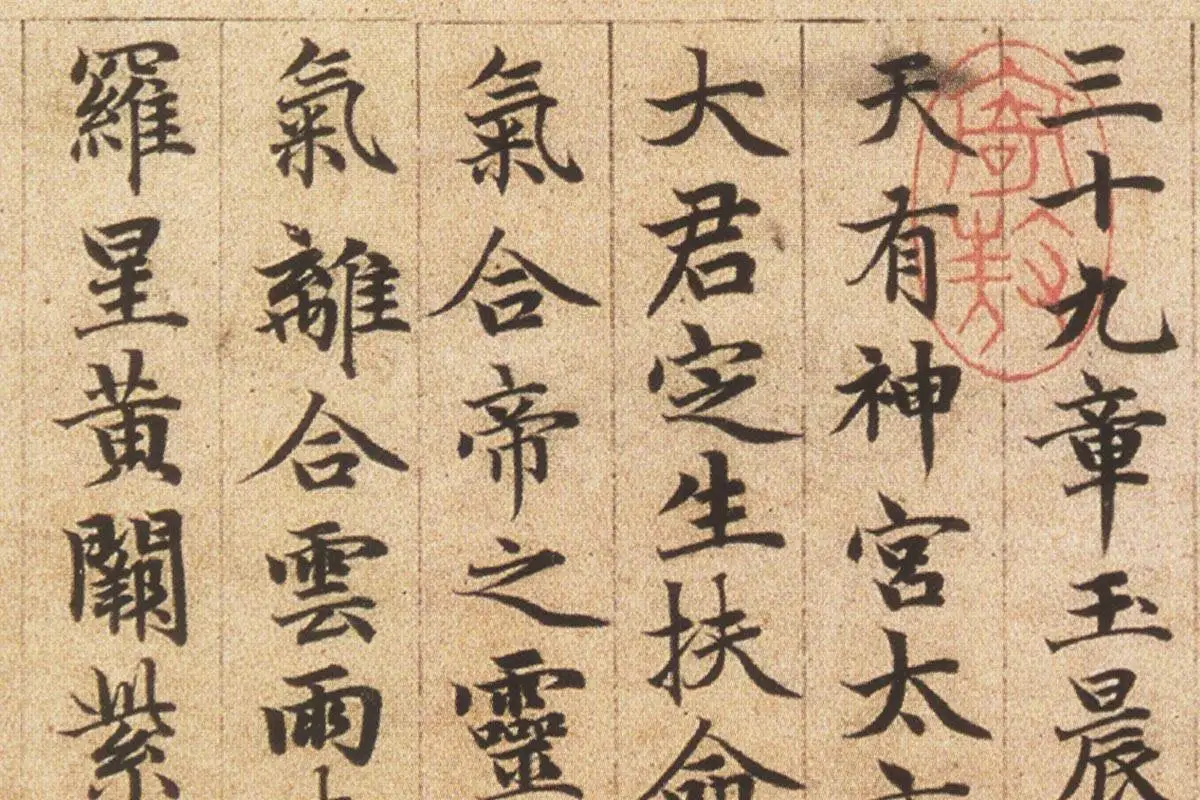 三十九章玉晨
天有神宮太
大君定生扶命
氣合帝之靈
氣離合雲雨
羅星黃闕紫